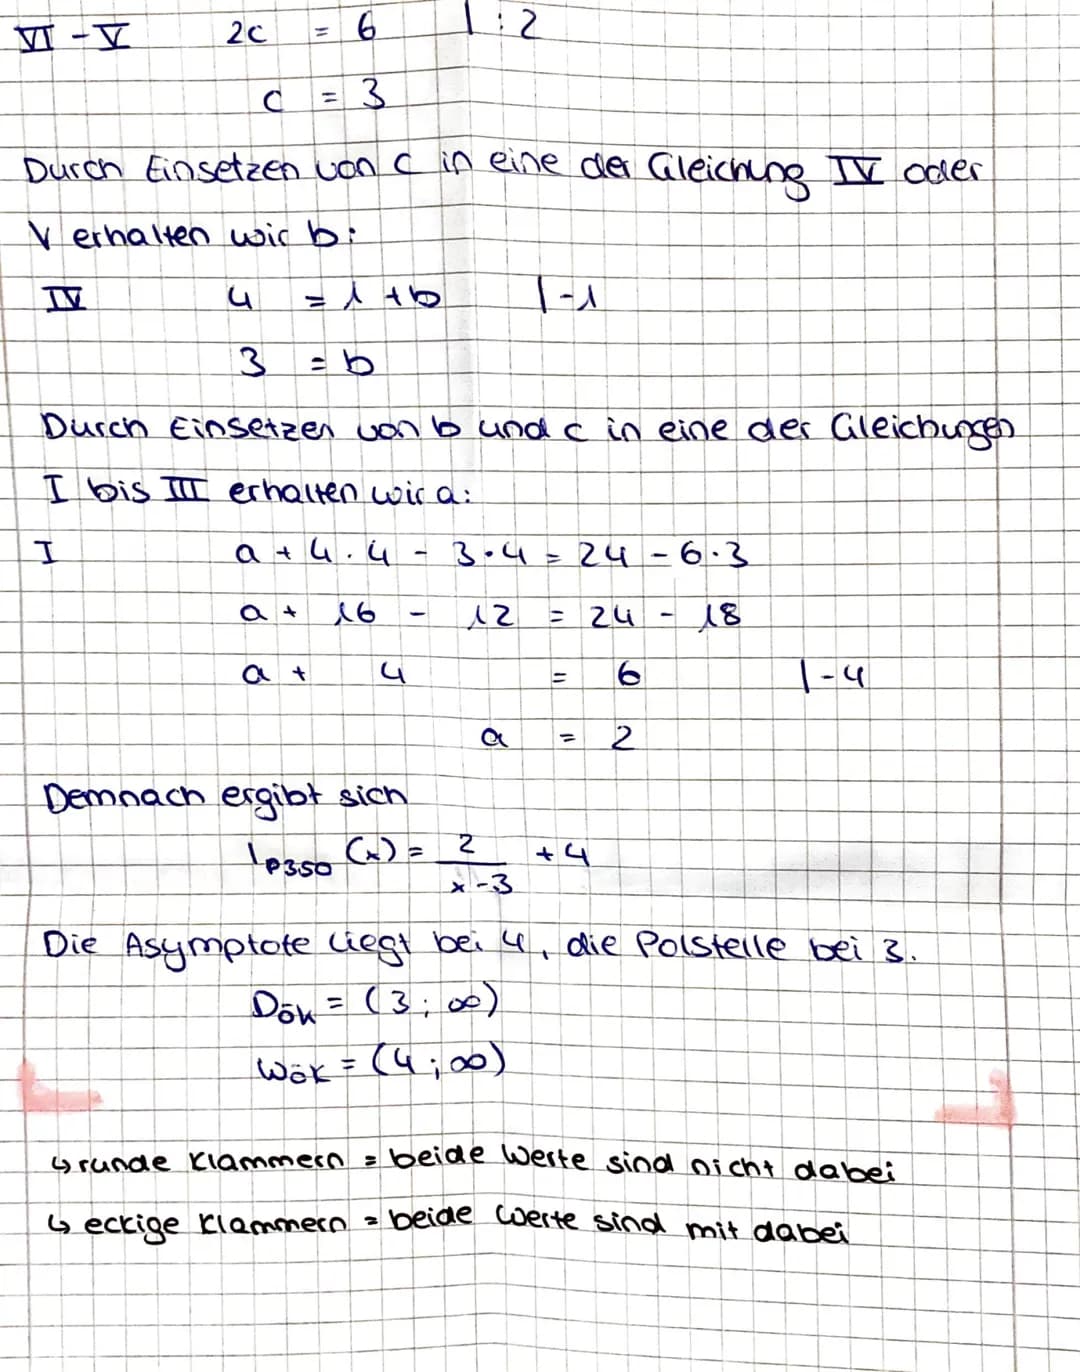 VI - V 2c = 6 | : 2
c = 3
Durch Einsetzen von c in eine der Gleichung IV oder
V erhalten wir b:
IV 4 = 1 + b | -1
3 = b
Durch Einsetzen von b und c in eine der Gleichungen
I bis III erhalten wir a:
I a + 4 · 4 - 3 · 4 = 24 - 6 · 3
a + 16 - 12 = 24 - 18
a + 4 = 6 | -4
a = 2
Demnach ergibt sich
(x) = 2/(x-3) + 4
Die Asymptote liegt bei 4, die Polstelle bei 3.
Dök = (3 ; ∞)
Wök = (4 ; ∞)
↳ runde Klammern = beide Werte sind nicht dabei
↳ eckige Klammern = beide Werte sind mit dabei